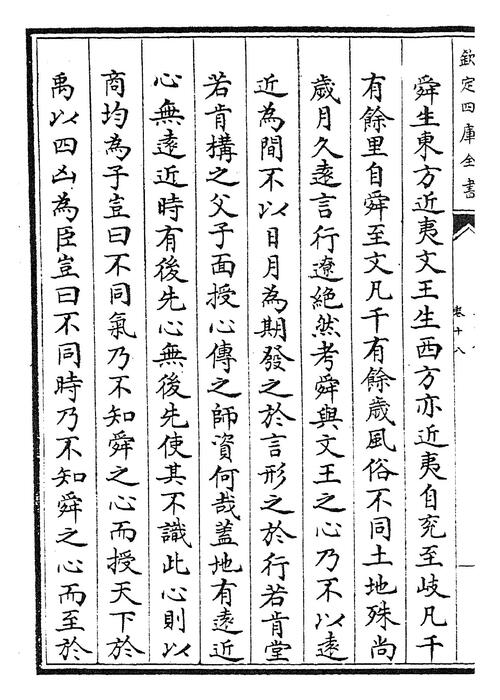 欽定四庫全書
卷十八
舜生東方近夷文王生西方亦近夷自兖至岐凡千
有餘里自舜至文凡千有餘歲風俗不同土地殊尚
歲月久逺言行遼絶然考舜與文王之心乃不以逺
近為間不以日月為期發之於言形之於行若肯堂
若肯構之父子面授心傳之師資何哉蓋地有逺近
心無逺近時有後先心無後先使其不識此心則以
商均為子豈曰不同氣乃不知舜之心而授天下於
禹以四凶為臣豈曰不同時乃不知舜之心而至於